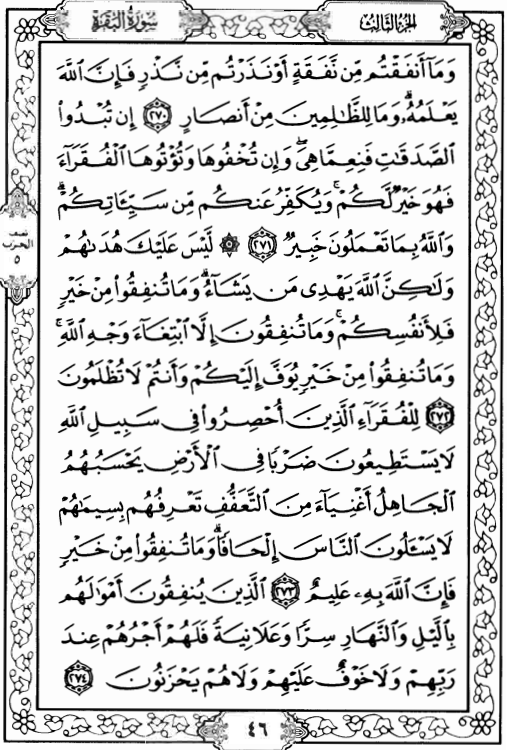 الجزء الثالث
سورة البقرة
وَمَآ أَنفَقْتُم مِّن نَّفَقَةٍ أَوْ نَذَرْتُم مِّن نَّذْرٍ فَإِنَّ ٱللَّهَ
يَعْلَمُهُۥۗ وَمَا لِلظَّٰلِمِينَ مِنْ أَنصَارٍ ٢٧٠ إِن تُبْدُوا۟
ٱلصَّدَقَٰتِ فَنِعِمَّا هِىَۖ وَإِن تُخْفُوهَا وَتُؤْتُوهَا ٱلْفُقَرَآءَ
فَهُوَ خَيْرٌ لَّكُمْۚ وَيُكَفِّرُ عَنكُم مِّن سَيِّـَٔاتِكُمْۗ
وَٱللَّهُ بِمَا تَعْمَلُونَ خَبِيرٌ ٢٧١ ۞ لَّيْسَ عَلَيْكَ هُدَىٰهُمْ
وَلَٰكِنَّ ٱللَّهَ يَهْدِى مَن يَشَآءُۗ وَمَا تُنفِقُوا۟ مِنْ خَيْرٍ
فَلِأَنفُسِكُمْۚ وَمَا تُنفِقُونَ إِلَّا ٱبْتِغَآءَ وَجْهِ ٱللَّهِۚ
وَمَا تُنفِقُوا۟ مِنْ خَيْرٍ يُوَفَّ إِلَيْكُمْ وَأَنتُمْ لَا تُظْلَمُونَ
٢٧٢ لِلْفُقَرَآءِ ٱلَّذِينَ أُحْصِرُوا۟ فِى سَبِيلِ ٱللَّهِ
لَا يَسْتَطِيعُونَ ضَرْبًا فِى ٱلْأَرْضِ يَحْسَبُهُمُ
ٱلْجَاهِلُ أَغْنِيَآءَ مِنَ ٱلتَّعَفُّفِ تَعْرِفُهُم بِسِيمَٰهُمْ
لَا يَسْـَٔلُونَ ٱلنَّاسَ إِلْحَافًاۗ وَمَا تُنفِقُوا۟ مِنْ خَيْرٍ
فَإِنَّ ٱللَّهَ بِهِۦ عَلِيمٌ ٢٧٣ ٱلَّذِينَ يُنفِقُونَ أَمْوَٰلَهُم
بِٱلَّيْلِ وَٱلنَّهَارِ سِرًّا وَعَلَانِيَةً فَلَهُمْ أَجْرُهُمْ عِندَ
رَبِّهِمْ وَلَا خَوْفٌ عَلَيْهِمْ وَلَا هُمْ يَحْزَنُونَ ٢٧٤
نصف
الحزب
٥
٤٦